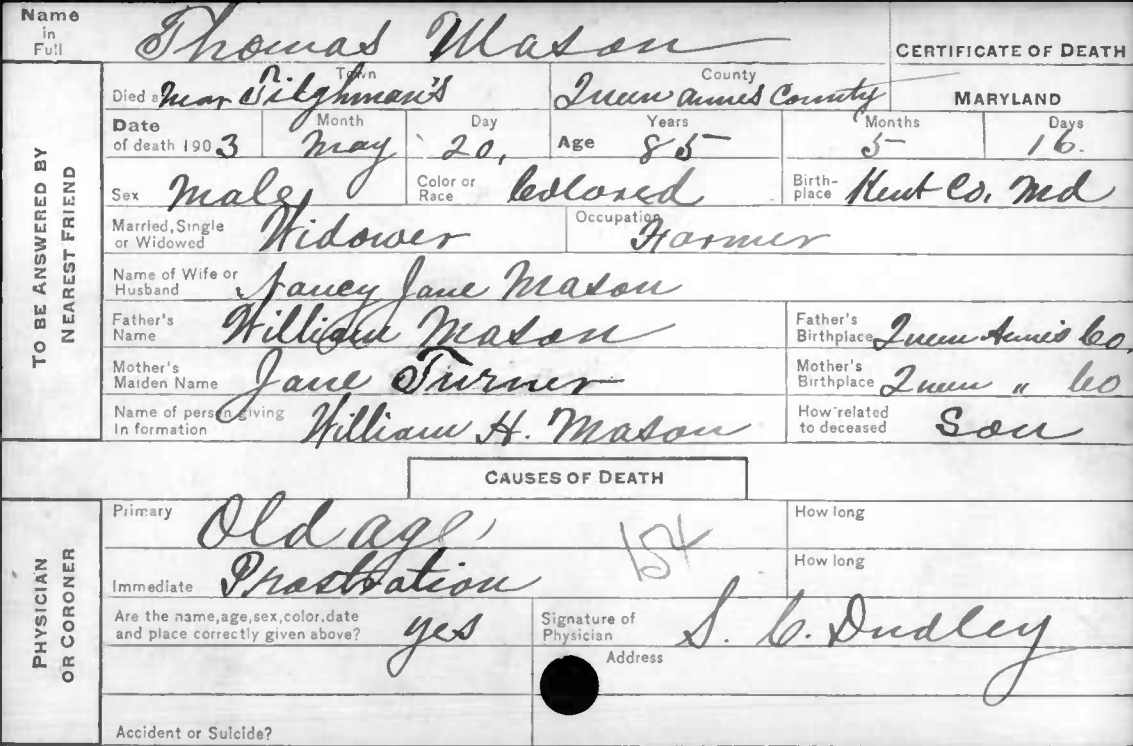 Name in Full Thomas Mason
CERTIFICATE OF DEATH
TO BE ANSWERED BY NEAREST FRIEND
Town County
Died at near Tilghman's Queen Annes County MARYLAND
Date of death 1903 Month May Day 20, Age Years 85 Months 5 Days 16.
Sex Male Color or Race Colored Birthplace Kent Co. Md
Married, Single or Widowed Widower Occupation Farmer
Name of Wife or Husband Nancy Jane Mason
Father's Name William Mason Father's Birthplace Queen Annes Co.
Mother's Maiden Name Jane Turner Mother's Birthplace Queen " Co
Name of person giving In formation William H. Mason How related to deceased Son
CAUSES OF DEATH
PHYSICIAN OR CORONER
Primary Old age How long
154
Immediate Prostration How long
Are the name, age, sex, color, date and place correctly given above? yes Signature of Physician S. C. Dudley
Address
Accident or Suicide?